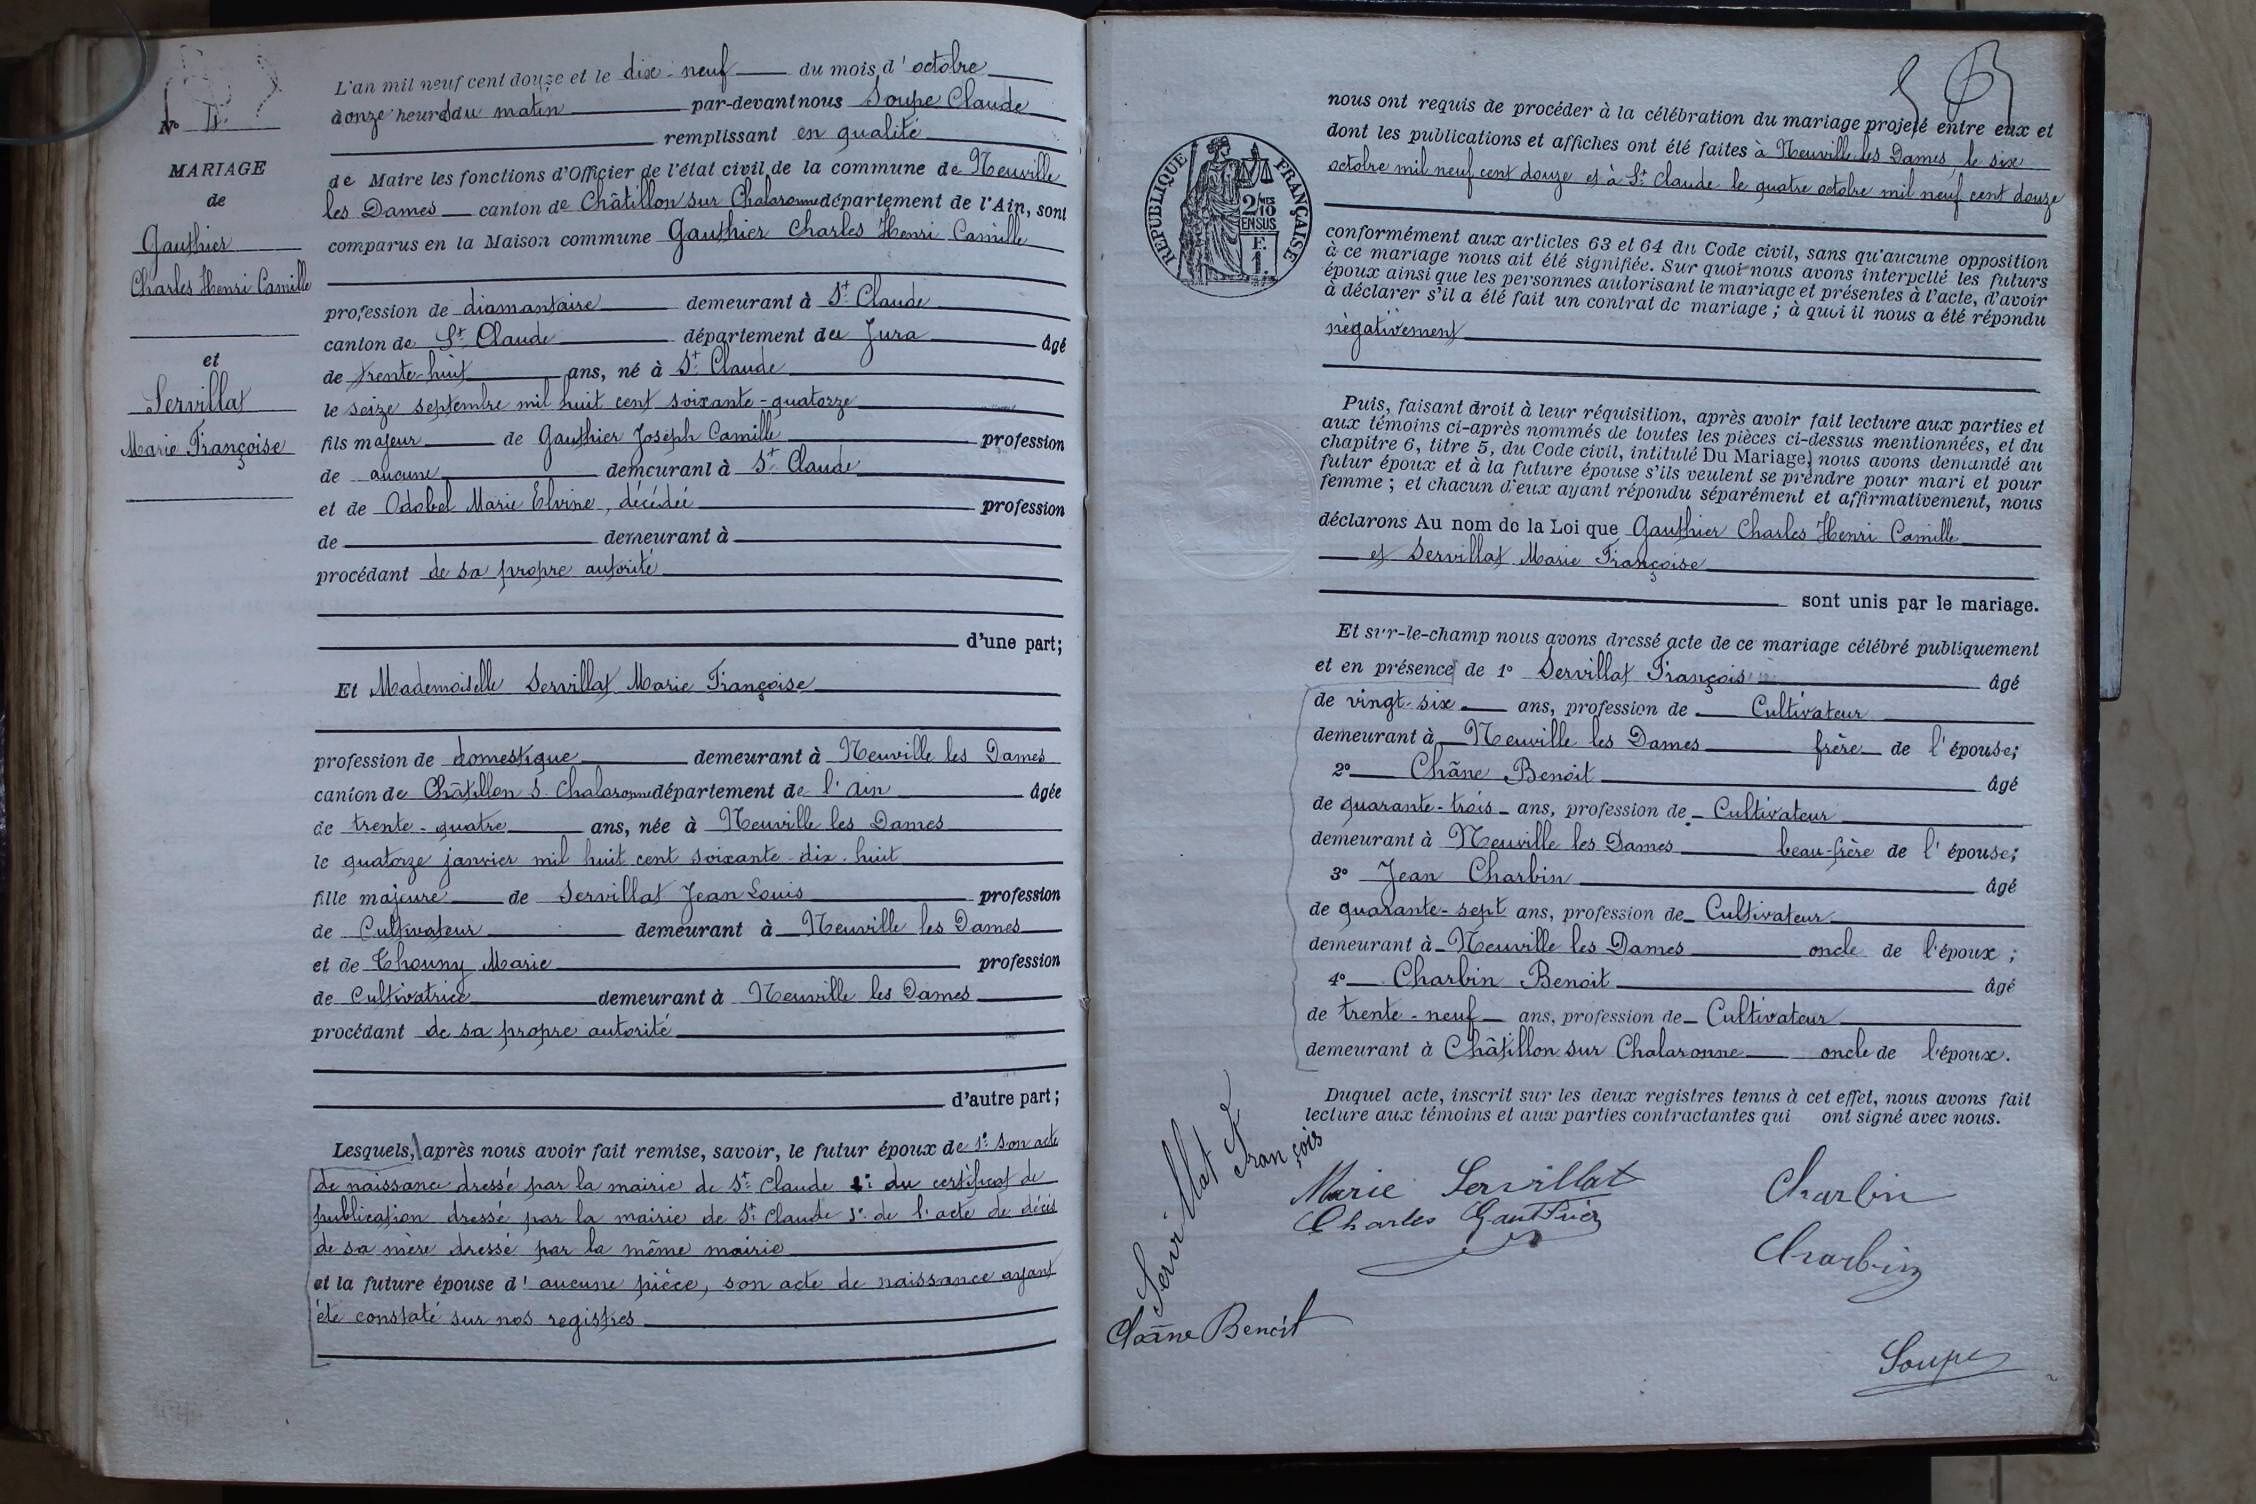 Nº 11.
MARIAGE
de
Gauthier
Charles Henri Camille
et
Servillat
Marie Françoise
L'an mil neuf cent douze et le dix-neuf du mois d'octobre
à onze heures du matin par-devant nous Soupe Claude
remplissant en qualité
de Maire les fonctions d'Officier de l'état civil de la commune de Neuville
les Dames canton de Châtillon sur Chalaronne département de l'Ain, sont
comparus en la Maison commune Gauthier Charles Henri Camille
profession de diamantaire demeurant à St Claude
canton de St Claude département du Jura âgé
de trente-huit ans, né à St Claude
le seize septembre mil huit cent soixante-quatorze
fils majeur de Gauthier Joseph Camille profession
de aucune demeurant à St Claude
et de Odobel Marie Elvine, décédée profession
de demeurant à
procédant de sa propre autorité
d'une part;
Et Mademoiselle Servillat Marie Françoise
profession de domestique demeurant à Neuville les Dames
canton de Châtillon s. Chalaronne département de l'Ain âgée
de trente-quatre ans, née à Neuville les Dames
le quatorze janvier mil huit cent soixante-dix-huit
fille majeure de Servillat Jean Louis profession
de Cultivateur demeurant à Neuville les Dames
et de Thouny Marie profession
de Cultivatrice demeurant à Neuville les Dames
procédant de sa propre autorité
d'autre part;
Lesquels, après nous avoir fait remise, savoir, le futur époux de 1º son acte
de naissance dressé par la mairie de St Claude 2º du certificat de
publication dressé par la mairie de St Claude 3º de l'acte de décès
de sa mère dressé par la même mairie
et la future épouse d'aucune pièce, son acte de naissance ayant
été constaté sur nos registres
nous ont requis de procéder à la célébration du mariage projeté entre eux et
dont les publications et affiches ont été faites à Neuville les Dames le six
octobre mil neuf cent douze et à St Claude le quatre octobre mil neuf cent douze
RÉPUBLIQUE FRANÇAISE
2/10
EN SUS
F.
1.
conformément aux articles 63 et 64 du Code civil, sans qu'aucune opposition
à ce mariage nous ait été signifiée. Sur quoi nous avons interpellé les futurs
époux ainsi que les personnes autorisant le mariage et présentes à l'acte, d'avoir
à déclarer s'il a été fait un contrat de mariage; à quoi il nous a été répondu
négativement
Puis, faisant droit à leur réquisition, après avoir fait lecture aux parties et
aux témoins ci-après nommés de toutes les pièces ci-dessus mentionnées, et du
chapitre 6, titre 5, du Code civil, intitulé Du Mariage, nous avons demandé au
futur époux et à la future épouse s'ils veulent se prendre pour mari et pour
femme; et chacun d'eux ayant répondu séparément et affirmativement, nous
déclarons Au nom de la Loi que Gauthier Charles Henri Camille
et Servillat Marie Françoise
sont unis par le mariage.
Et sur-le-champ nous avons dressé acte de ce mariage célébré publiquement
et en présence de 1º Servillat François âgé
de vingt-six ans, profession de Cultivateur
demeurant à Neuville les Dames frère de l'épouse;
2º Châne Benoit âgé
de quarante-trois ans, profession de Cultivateur
demeurant à Neuville les Dames beau-frère de l'épouse;
3º Jean Charbin âgé
de quarante-sept ans, profession de Cultivateur
demeurant à Neuville les Dames oncle de l'époux;
4º Charbin Benoit âgé
de trente-neuf ans, profession de Cultivateur
demeurant à Châtillon sur Chalaronne oncle de l'époux.
Duquel acte, inscrit sur les deux registres tenus à cet effet, nous avons fait
lecture aux témoins et aux parties contractantes qui ont signé avec nous.
Servillat François
Marie Servillat
Charles Gauthier
Charbin
Charbin
Châne Benoit
Soupe